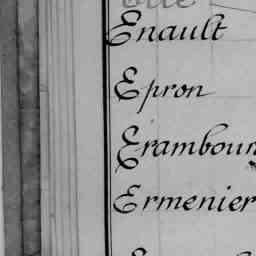 Enault
Epron
Erambour
Ermenier